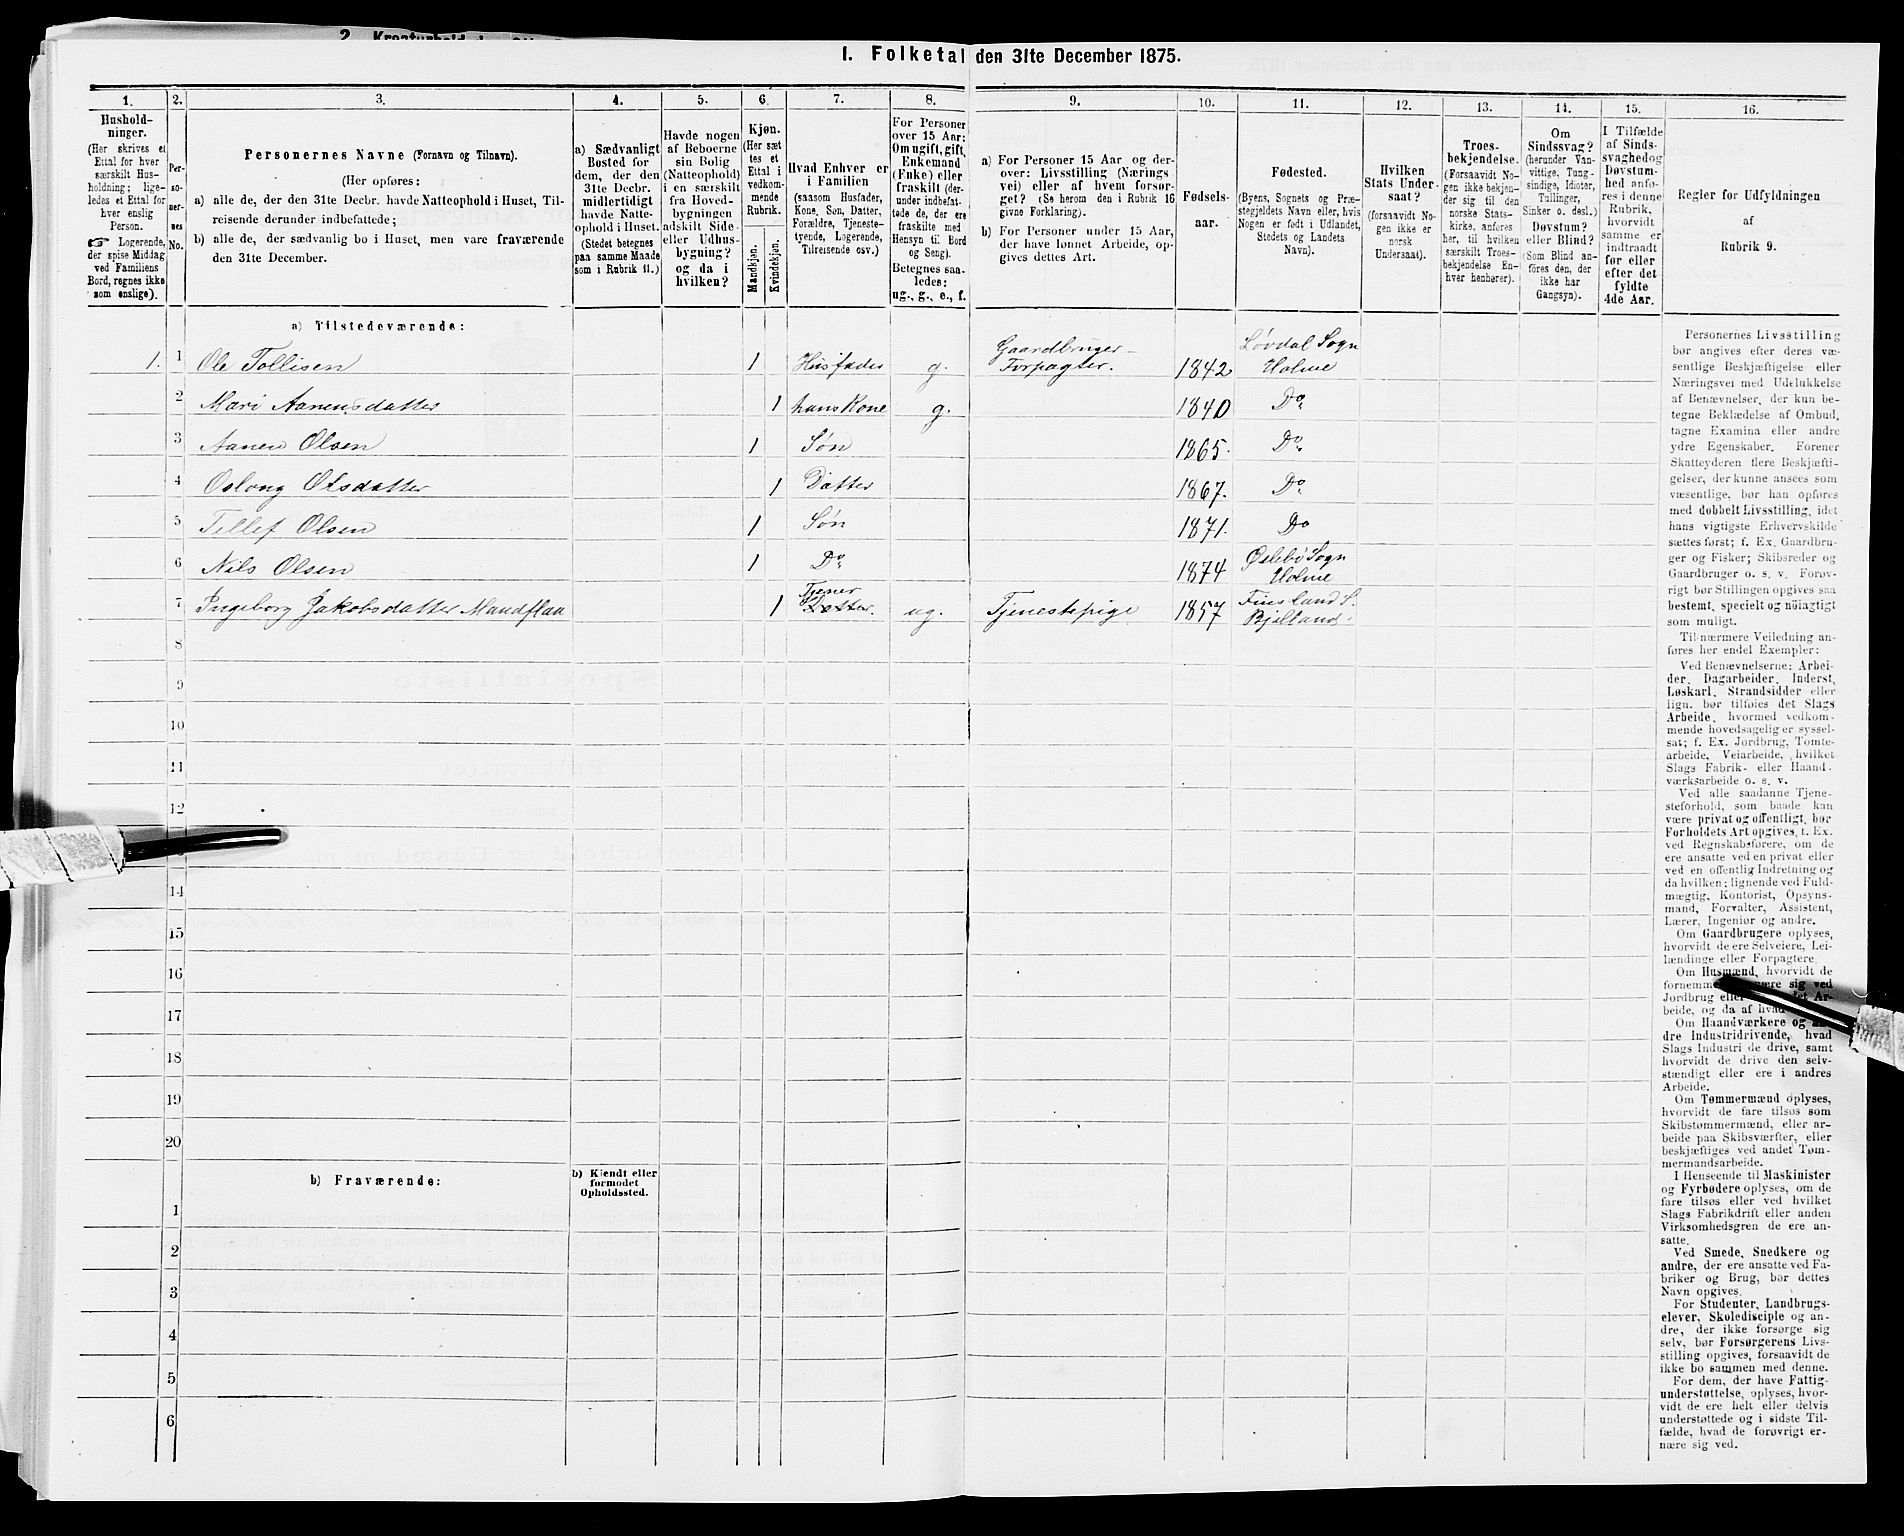 I. Folketal den 31te December 1875.
1. 2. 3. 4. 5. 6. 7. 8. 9. 10. 11. 12. 13. 14. 15. 16.
Husholdninger.
(Her skrives et
Ettal for hver
særskilt Husholdning; ligeledes
et Ettal for
hver enslig
Person.
☞ Logerende,
der spise Middag
ved Familiens
Bord, regnes ikke
som enslige).
Personernes No.
Personernes Navne (Fornavn og Tilnavn).
(Her opføres:
a) alle de, der den 31te Decbr. havde Natteophold i Huset, Tilreisende
derunder indbefattede;
b) alle de, der sædvanlig bo i Huset, men vare fraværende
den 31te December.
a) Sædvanligt
Bosted for
dem, der den
31te Decbr.
midlertidigt
havde Natteophold
i Huset.
(Stedet betegnes
paa samme Maade
som i Rubrik 11.)
Havde nogen
af Beboerne
sin Bolig
(Natteophold)
i en særskilt
fra Hovedbygningen
adskilt Side-
eller Udhusbygning?
og da i
hvilken?
Kjøn.
(Her sættes
et
Ettal i
vedkommende
Rubrik.
Mandkjøn.
Kvindekjøn.
Hvad Enhver er
i Familien
(saasom Husfader,
Kone, Søn, Datter,
Forældre, Tjenestetyende,
Logerende,
Tilreisende osv.)
For Personer
over 15 Aar:
Om ugift, gift,
Enkemand
(Enke) eller
fraskilt (derunder
indbefattede
de, der ere
fraskilte med
Hensyn til Bord
og Seng).
Betegnes saaledes:
ug., g., e., f.
a) For Personer 15 Aar og derover:
Livsstilling (Næringsvei)
eller af hvem forsørget?
(Se herom den i Rubrik 16
givne Forklaring).
b) For Personer under 15 Aar,
der have lønnet Arbeide, opgives
dettes Art.
Fødselsaar.
Fødested.
(Byens, Sognets og Præstegjeldets
Navn eller, hvis
Nogen er født i Udlandet,
Stedets og Landets
Navn).
Hvilken
Stats Undersaat?
(forsaavidt Nogen
ikke er
norsk
Undersaat).
Troesbekjendelse.
(Forsaavidt Nogen
ikke bekjender
sig til den
norske Statskirke,
anføres
her, til hvilken
særskilt Troesbekjendelse
Enhver
henhører).
Om
Sindssvag?
(herunder Vanvittige,
Tungsindige,
Idioter,
Tullinger,
Sinker o. desl.)
Døvstum?
eller Blind?
(Som Blind anføres
den, der
ikke har
Gangsyn).
I Tilfælde
af Sindssvaghed
og
Døvstumhed
anføres
i denne
Rubrik,
hvorvidt
samme er
indtraadt
før eller
efter det
fyldte
4de Aar.
Regler for Udfyldningen
af
Rubrik 9.
a) Tilstedeværende:
1. 1 Ole Tollisen 1 Husfader g. Gaardbruger-Forpagter. 1842 Løvdal Sogn Holme
2 Mari Aanensdatter 1 hans Kone g. 1840 Do.
3 Aanen Olsen 1 Søn 1865. Do.
4 Oslong Olsdatter 1 Datter 1867. Do.
5 Tellef Olsen 1 Søn 1871. Do
6 Nils Olsen 1 Do. 1874 Øslebø Sogn Holme
7 Ingeborg Jakobsdatter Mandflaa 1 Tjener Datter. ug. Tjenestepige 1857 Finsland S. Bjelland
8
9
10
11
12
14
15
16
17
18
19
20
b) Fraværende:
b) Kjendt eller
formodet
Opholdssted.
1
2
3
4
5
6
Personernes Livsstilling
bør angives efter deres væsentlige
Beskjæftigelse eller
Næringsvei med Udelukkelse
af Benævnelser, der kun betegne
Beklædelse af Ombud,
tagne Examina eller andre
ydre Egenskaber. Forener
Skatteyderen flere Beskjæftigelser,
der kunne ansees som
væsentlige, bør han opføres
med dobbelt Livsstilling, idet
hans vigtigste Erhvervskilde
sættes først; f. Ex. Gaardbruger
og Fisker; Skibsreder og
Gaardbruger o. s. v. Forøvrigt
bør Stillingen opgives saa
bestemt, specielt og nøiagtigt
som muligt.
Til nærmere Veiledning anføres
her endel Exempler:
Ved Benævnelserne: Arbeider,
Dagarbeider, Inderst,
Løskarl, Strandsidder eller
lign. bør tilføies det Slags
Arbeide, hvormed vedkommende
hovedsagelig er sysselsat;
f. Ex. Jordbrug, Tomtearbeide,
Veiarbeide, hvilket
Slags Fabrik- eller Haandværksarbeide
o. s. v.
Ved alle saadanne Tjenesteforhold,
som baade kan
være privat og offentligt, bør
Forholdets Art opgives, t. Ex.
ved Regnskabsførere, om de
ere ansatte ved en privat eller
ved en offentlig Indretning og
da hvilken; lignende ved Fuldmægtig,
Kontorist, Opsynsmand,
Forvalter, Assistent,
Lærer, Ingeniør og andre.
Om Gaardbrugere oplyses,
hvorvidt de ere Selveiere, Leilændinge
eller Forpagtere.
Om Husmænd, hvorvidt de
fornemme ære sig ved
Jordbrug eller det Arbeide,
og da af hvad
Om Haandværkere og andre
Industridrivende, hvad
Slags Industri de drive, samt
hvorvidt de drive den selvstændigt
eller ere i andres
Arbeide.
Om Tømmermænd oplyses,
hvorvidt de fare tilsøs som
Skibstømmermænd, eller arbeide
paa Skibsværfter, eller
beskjæftiges ved andet Tømmermandsarbeide.
I Henseende til Maskinister
og Fyrbødere oplyses, om de
fare tilsøs eller ved hvilket
Slags Fabrikdrift eller anden
Virksomhedsgren de ere ansatte.
Ved Smede, Snedkere og
andre, der ere ansatte ved Fabriker
og Brug, bør dettes
Navn opgives.
For Studenter, Landbrugselever,
Skoledisciple og andre,
der ikke forsørge sig
selv, bør Forsørgerens Livsstilling
opgives, forsaavidt de
ikke bo sammen med denne.
For dem, der have Fattigunderstøttelse,
oplyses, hvorvidt
de ere helt eller delvis
understøttede og i sidste Tilfælde,
hvad de forøvrigt ernære
sig ved.